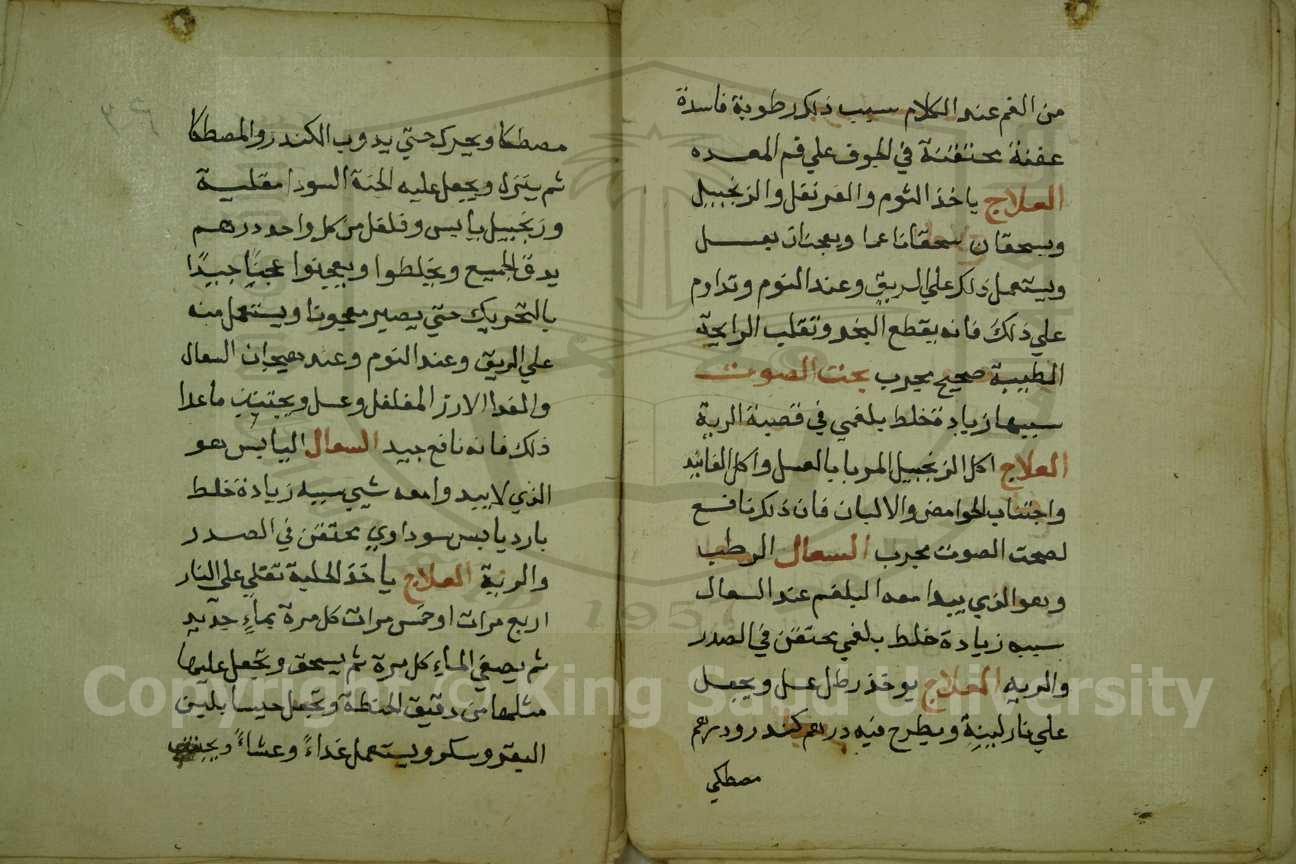 من الفم عند الكلام سبب ذلك رطوبة فاسدة
عفنة محتقنة في الجوف علي فم المعده
العلاج ياخذ الثوم والقرنفل والزنجبيل
ويسحقان سحقا ناعما ويعجنان بعسل
ويستعمل ذلك علي الريق وعند النوم وتداوم
علي ذلك فانه يقطع البخر وتقلب الرايحة
الطيبة صحيح مجرب بحت الصوت
سببها زيادة خلط بلغمي في قصبة الرية
العلاج اكل الزنجبيل المربا بالعسل واكل الفانيد
واجتناب الحوامض والالبان فان ذلك نافع
لصحت الصوت مجرب السعال الرطب
وهو الذي يبدا معه البلغم عند السعال
سببه زيادة خلط بلغمي محتقن في الصدر
والريه العلاج يوخذ رطل عسل ويجعل
علي نار لينة ويطرح فيه درهم كندر ودرهم
مصطكي
مصطكا ويحرك حتي يدوب الكندر والمصطكا
ثم ينزل ويجعل عليه الحبة السودا مقلية
وزنجبيل يابس وفلفل من كل واحد درهم
يدق الجميع ويخلطوا ويعجنوا عجنا جيدا
بالتحريك حتي يصير معجونا ويستعمل منه
علي الريق وعند النوم وعند هيجان السعال
والغدا الارز المفلفل وعسل ويجتنب ماعدا
ذلك فانه نافع جيد السعال اليابس هو
الذي لا يبدوا معه شيي سببه زيادة خلط
بارد يابس سوداوي محتقن في الصدر
والرية العلاج يأخذ الحلبة تقلي علي النار
اربع مرات او خمس مرات كل مرة بماء جديد
ثم يصفي الماء كل مرة ثم يسحق ويجعل عليها
مثلها من دقيق الحنطة ويجعل حيسا بلبن
البقر وسكر ويستعمل غداءً وعشاءً
Copyright © King Saud University
1957